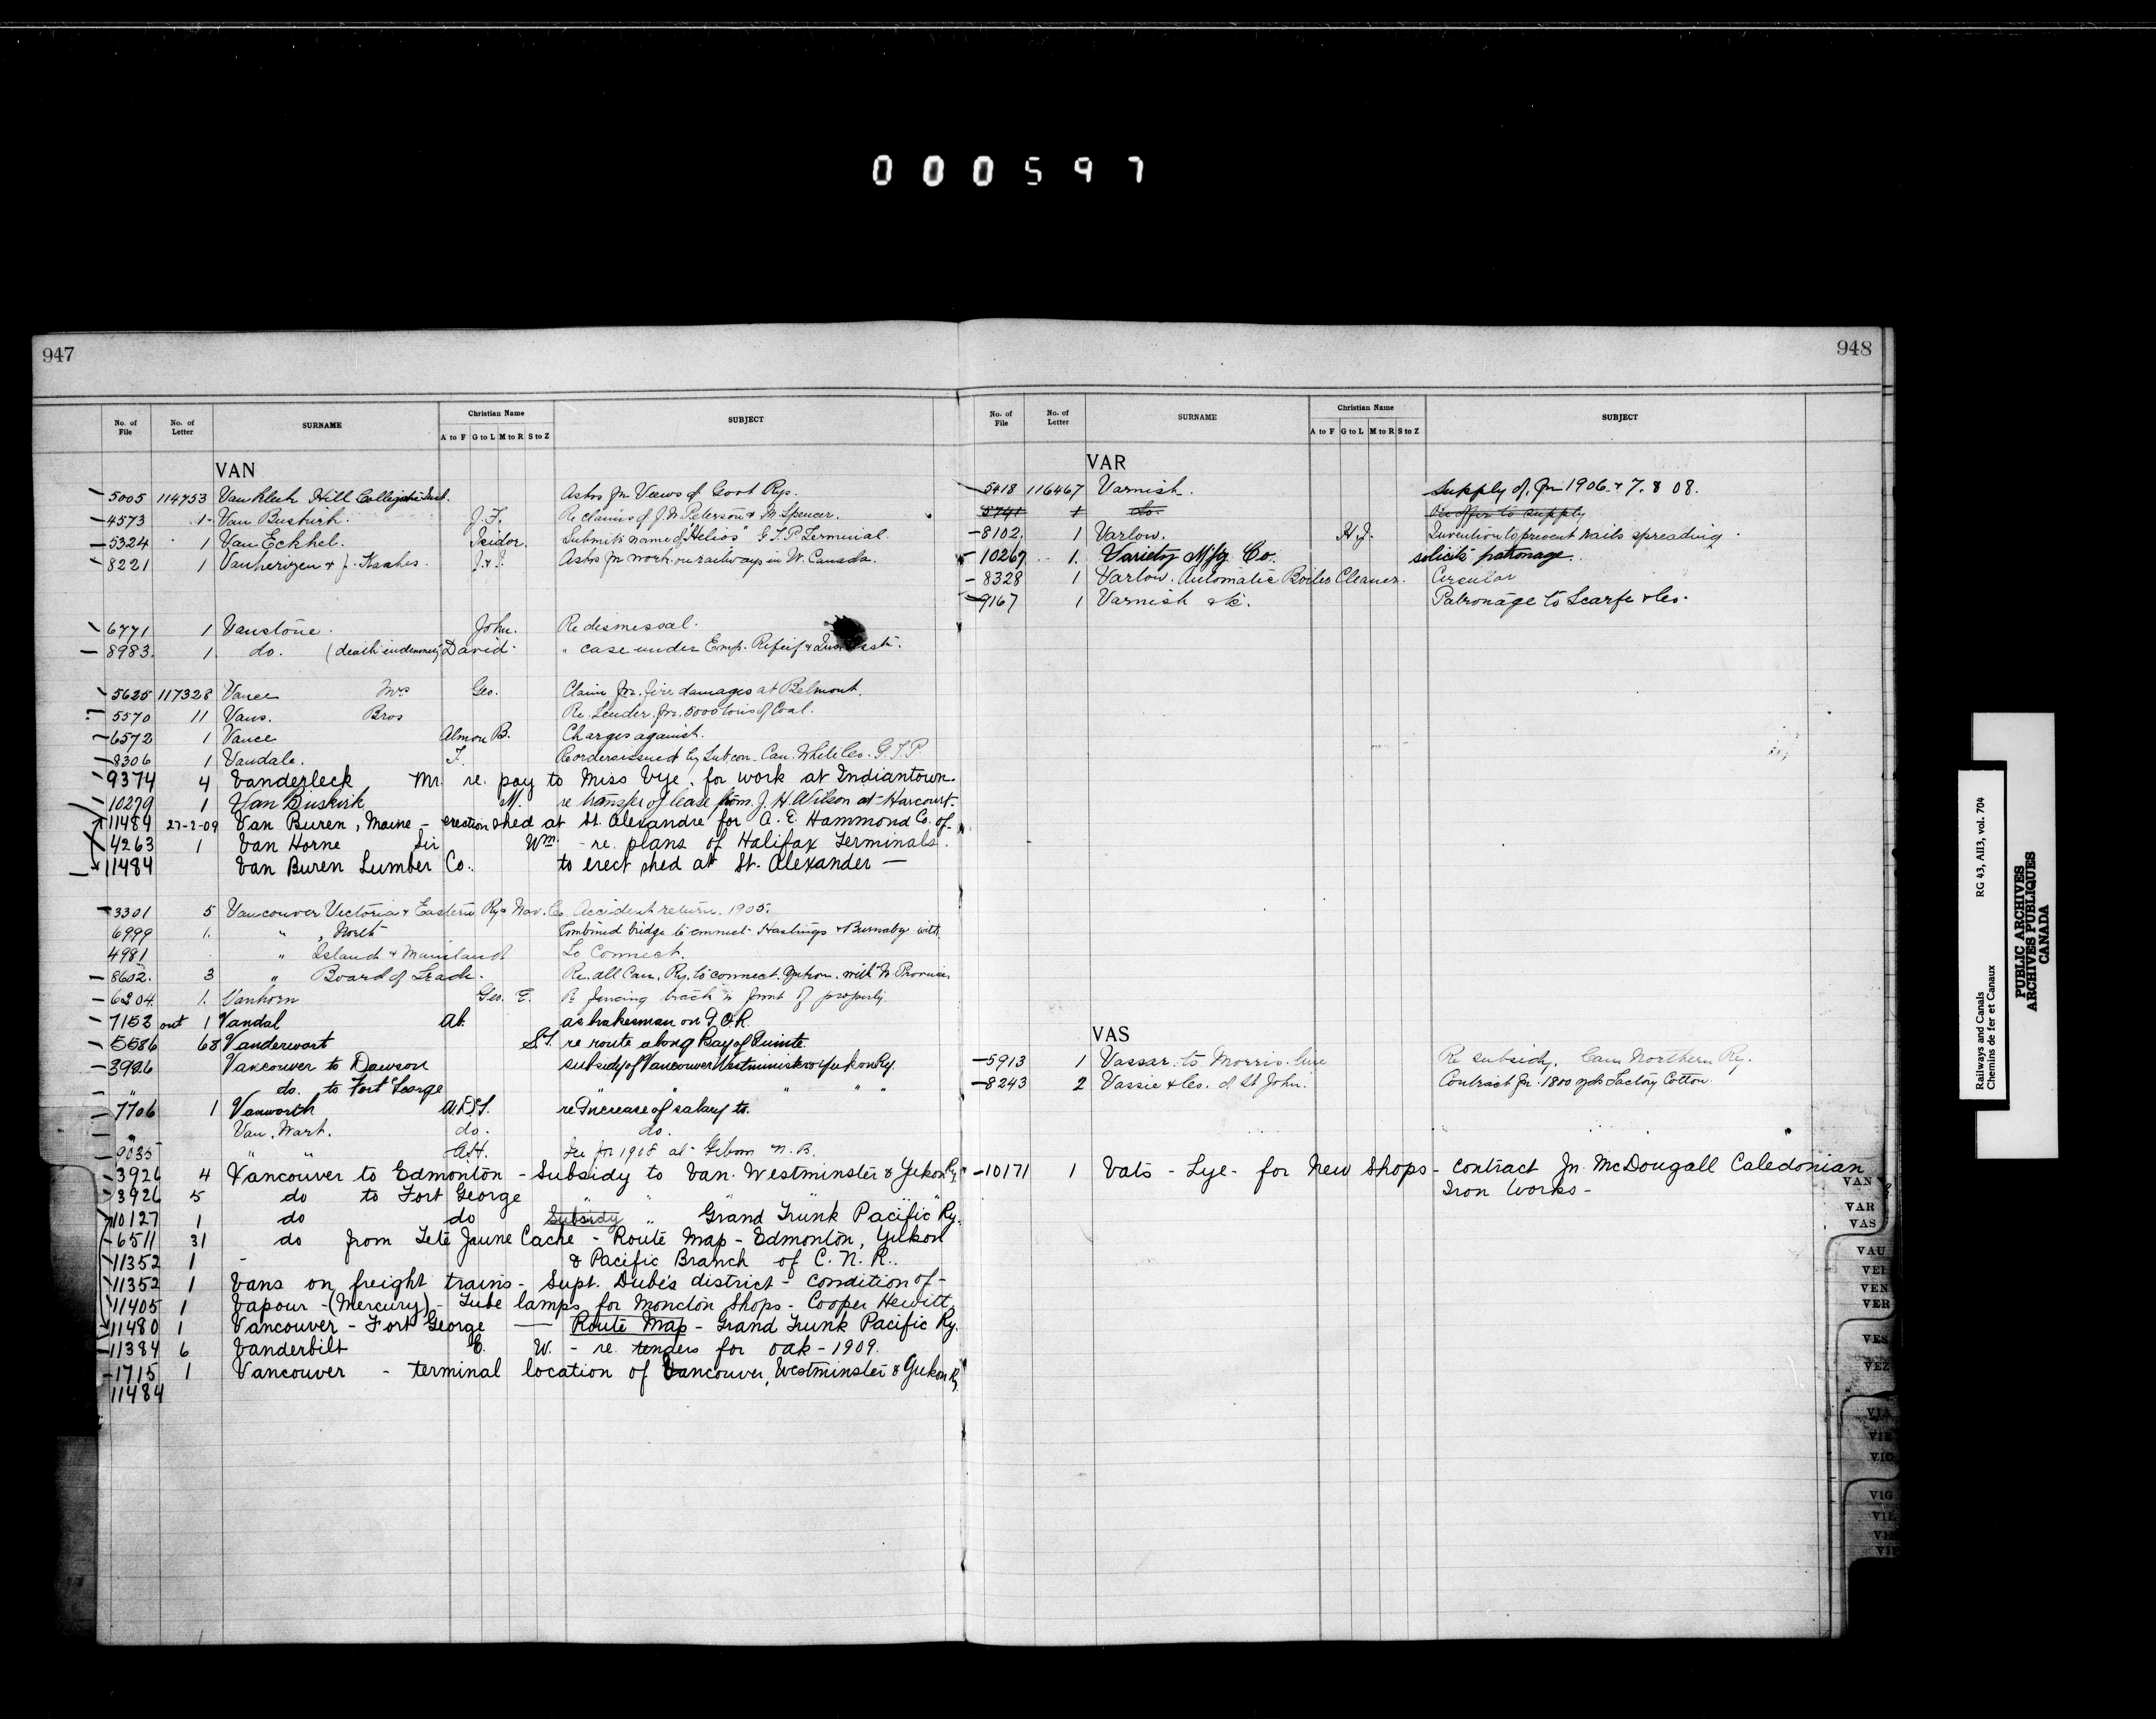 000597
947
No. of File No. of Letter SURNAME Christian Name A to F G to L M to R S to Z SUBJECT
VAN
5005 114753 Vankleek Hill Collegiate Inst. Asks for Views of Govt Rys.
4573 1 Van Buskirk. J.F. Re claims of J.N. Peterson & M. Spencer.
5324 1 Van Eckhel. Isidor. Submits name of "Helios" G.T.P. Terminal
8221 1 J.&J. Asks for work on railways in W. Canada.
6771 1 Vanstone. John. Re dismissal.
8983. 1. do. (death indemnity) David. " case under Emp. Relief & Ins.
5625 117328 Vance Mrs Geo. Claim for fire damages at Belmont.
5570 11 Vans. Bros Re. Tender for 5000 tons of Coal.
6572 1 Vance Almon B. Charges against.
8306 1 Vandale. F. Re orders issued by Subcon. Can. White Co. G.T.P.
9374 4 Vanderleck Mr. re. pay to Miss Vye, for work at Indiantown.
10279 1 Van Buskirk M. re transfer of lease from J. H. Wilson at Harcourt.
11484 27-2-09 Van Buren, Maine - erection shed at St. Alexandre for A. E. Hammond Co. of
4263 1 Van Horne Sir Wm. - re. plans of Halifax Terminals.
11484 Van Buren Lumber Co. to erect shed at St. Alexander —
3301 5 Vancouver Victoria & Eastern Ry & Nav. Co. Accident return. 1905.
6999 1. " , North Combined bridge to connect Hastings & Burnaby with.
4981 " Island & Mainland To Connect.
8602. 3 " Board of Trade. Re. all Can. Ry. to connect. Yukon. with N. Provinces
6204. 1. Vanhorn Geo. E. Re fencing track in front of property.
7152 out 1 Vandal Al. as brakesman on I.C.R.
5586 68 Vanderwart S.T. re route along Bay of Quinte
3926 Vancouver to Dawson subsidy of Vancouver Westminister & Yukon Ry.
" do. to Fort George " " " "
7706 1 Vanworth A.D.S. re Increase of salary to.
" Van. Wart. do. do.
9035 " " A.H. for 1908 at Gibson N.B.
3926 4 Vancouver to Edmonton - Subsidy to Van. Westminster & Yukon Ry.
3926 5 do to Fort George " " " " "
10127 1 do do Subsidy " Grand Trunk Pacific Ry.
6511 31 do from Tete Jaune Cache - Route Map - Edmonton, Yukon
11352 1 - & Pacific Branch of C. N. R.
11352 1 Vans on freight trains - Supt. Dubé's district - condition of -
11405 1 Vapour - (Mercury) - Tube lamps for Moncton Shops - Cooper Hewitt.
11480 1 Vancouver - Fort George — Route Map - Grand Trunk Pacific Ry.
11384 6 Vanderbilt E. W. - re. tenders for oak - 1909.
1715 1 Vancouver - terminal location of Vancouver, Westminster & Yukon Ry.
11484
948
No. of File No. of Letter SURNAME Christian Name A to F G to L M to R S to Z SUBJECT
VAR
5418 116467 Varnish. Supply of, for 1906 & 7. & 08.
5741 1 do. Re offer to supply
8102. 1 Varlow. H.J. Invention to prevent rails spreading.
10267 1. Variety M'fg. Co. solicits patronage.
8328 1 Varlow. Automatic Boiler Cleaner. Circular
9167 1 Varnish &c. Patronage to Scarfe & Co.
VAS
5913 1 Vassar to Morris line Re subsidy. Can Northern Ry.
8243 2 Vassie & Co. of St John. Contract for 1800 yds Factory Cotton.
10171 1 Vats - Lye - for New Shops - contract Jn. McDougall Caledonian
Iron Works -
VAN
VAR
VAS
VAU
VEI
VEN
VER
VES
VEZ
VIA
VIE
VIG
Railways and Canals RG 43, AII3, vol. 704
Chemins de fer et Canaux
PUBLIC ARCHIVES
ARCHIVES PUBLIQUES
CANADA